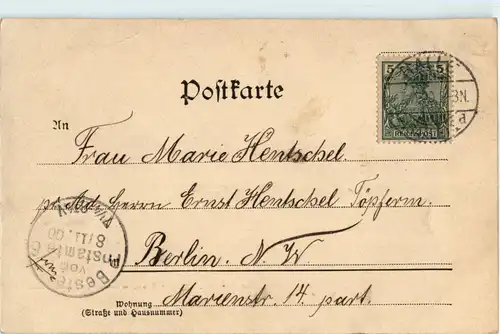 Postkarte
5 5
REICHSPOST
HALLE
N.
An
Frau Marie Hentschel.
p. Ad. Herrn Ernst Hentschel Töpferm.
Berlin. N. W
Marienstr. 14. part.
Wohnung
(Straße und Hausnummer)
Bestellt
vom
Postamte 6
8/11.00